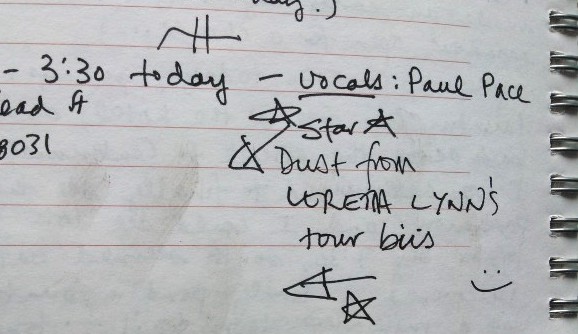 day.)
- 3:30 today - vocals: Paul Pace
ead A
8031
Star
Dust from
LORETTA LYNN'S
tour bus
:)